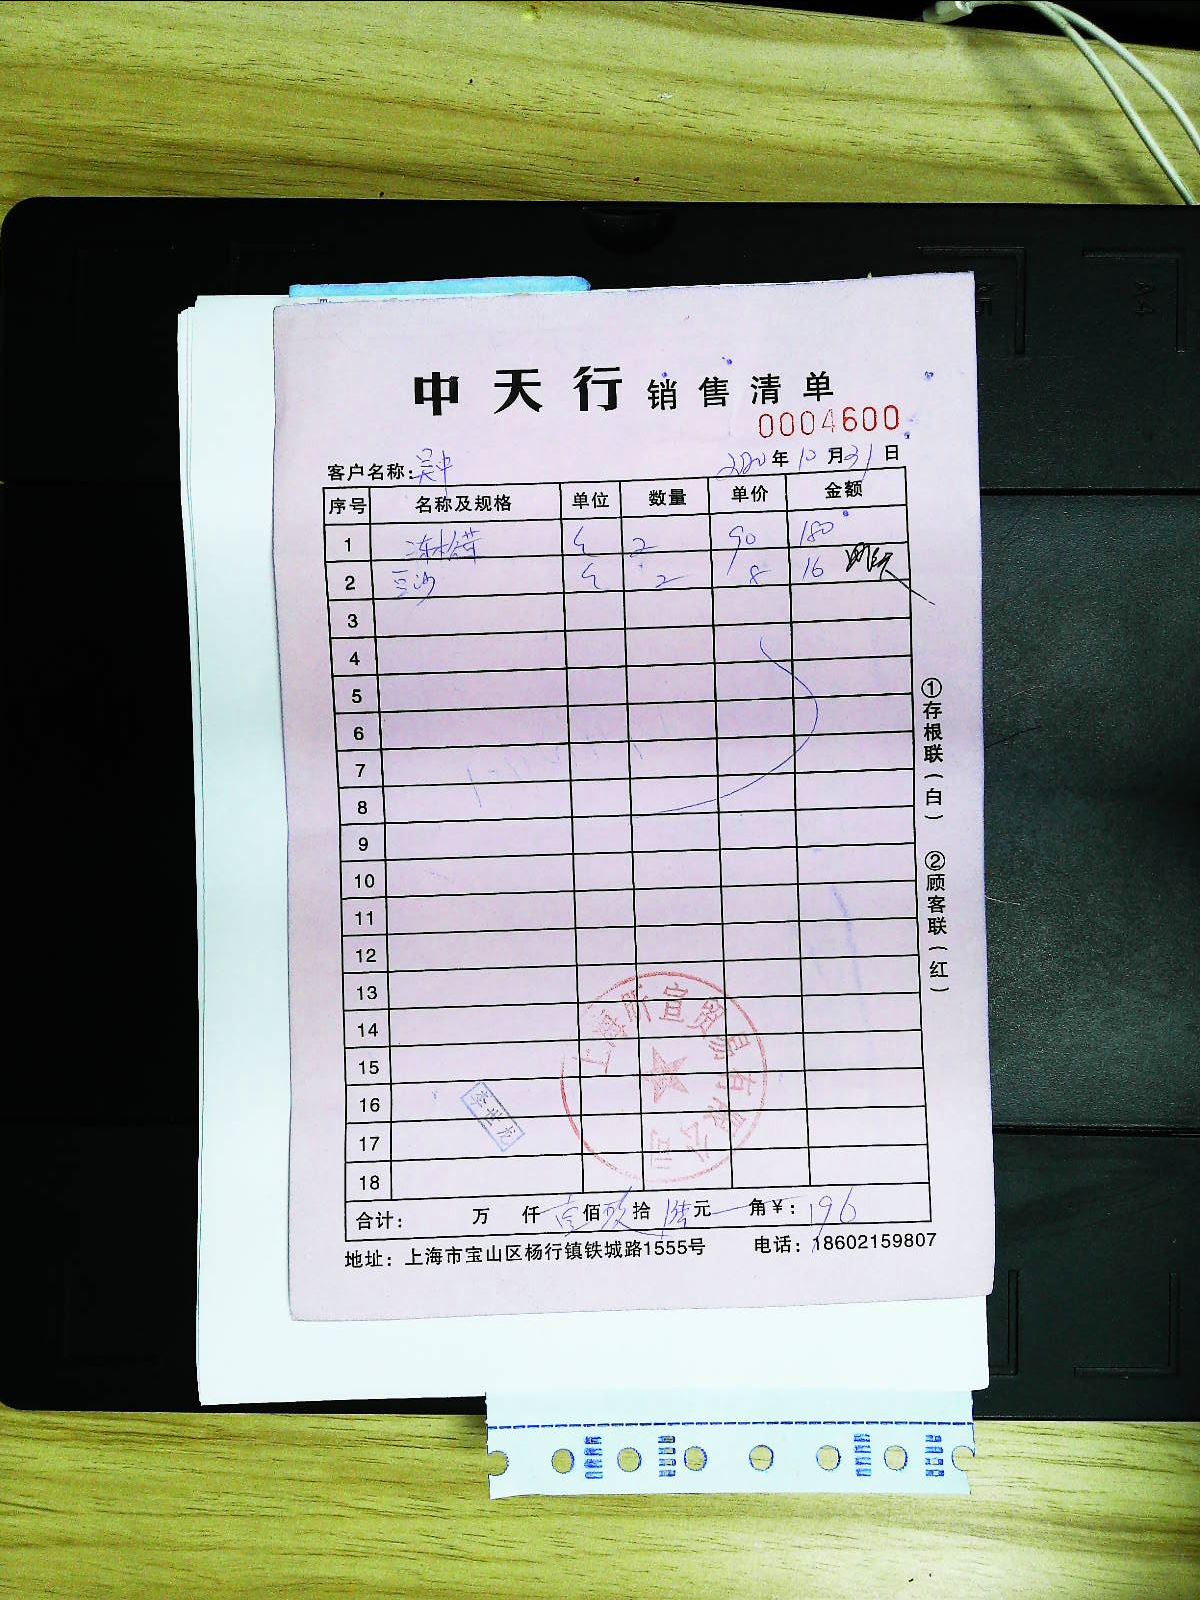 中天行 销售清单
0004600
客户名称:吴中 2020年10月31日
序号 名称及规格 单位 数量 单价 金额
1 冻松茸 2 90 180
2 豆沙 2 8 16
3
4
5
6
7
8
9
10
11
12
13
14
15
16
17
18
上海昕宣贸易有限公司
李世龙
合计: 万 仟 壹佰玖拾陆元 角¥:196
地址:上海市宝山区杨行镇铁城路1555号 电话:18602159807
①存根联(白) ②顾客联(红)